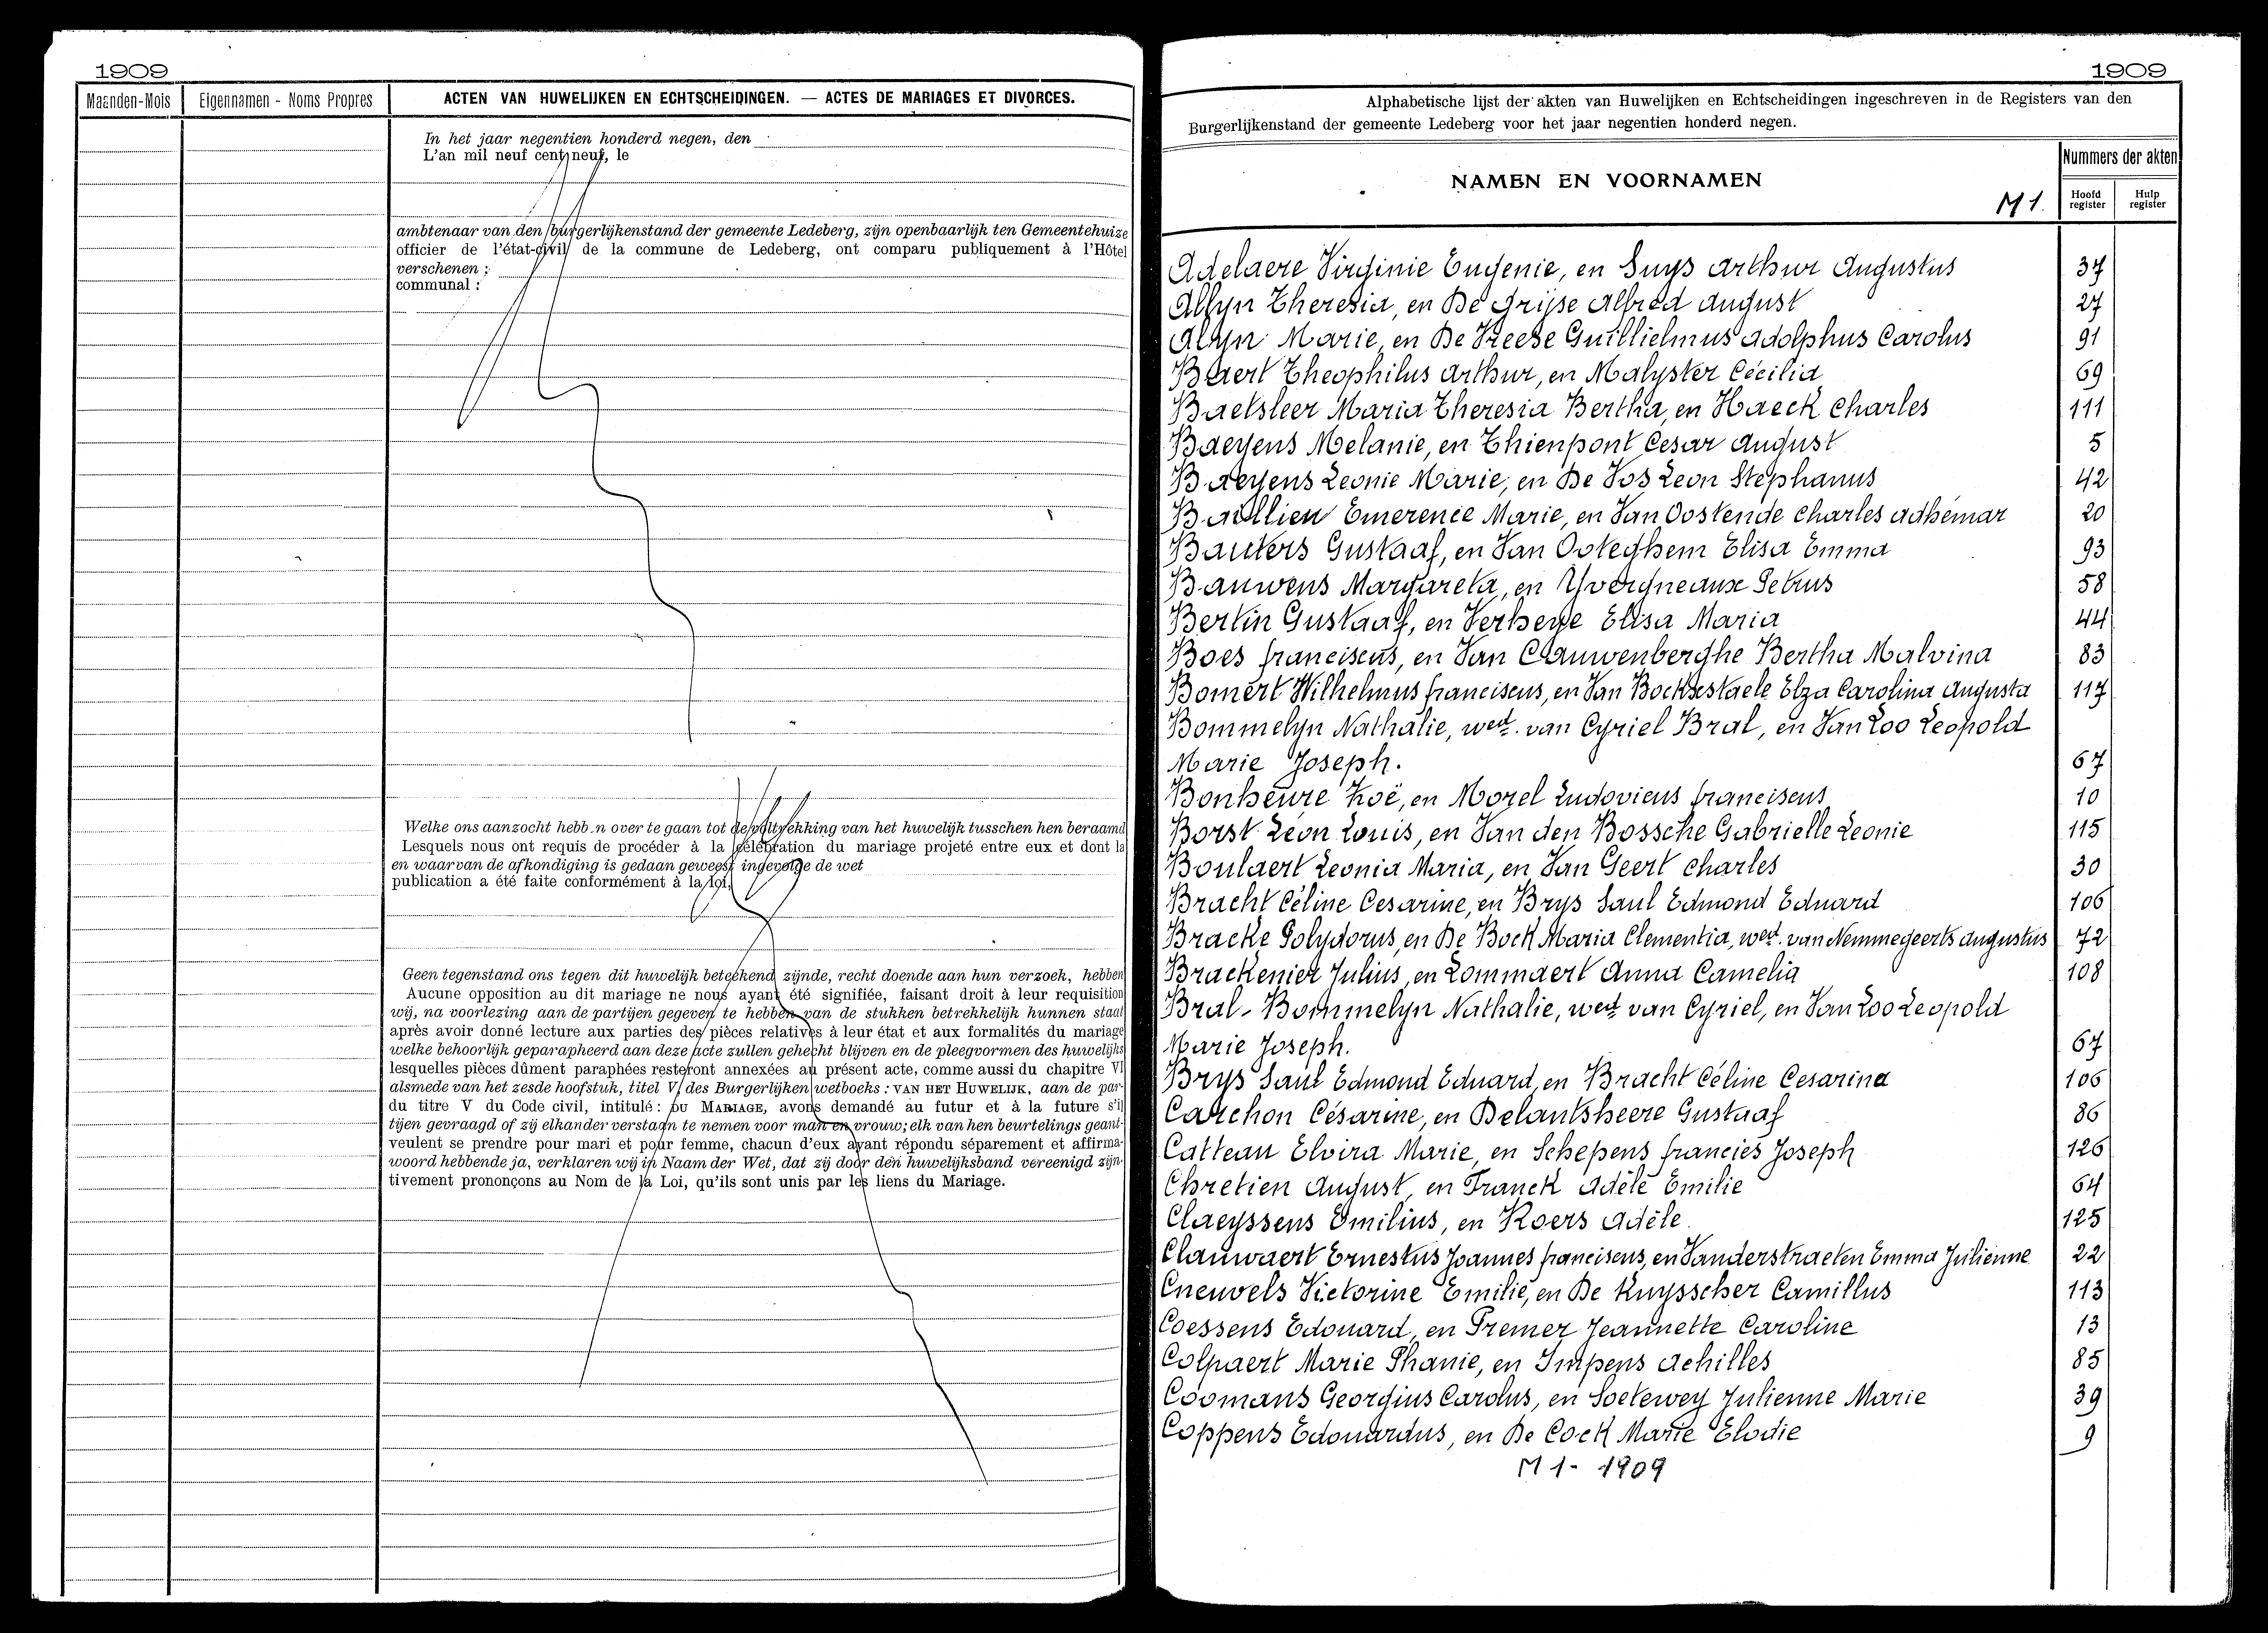 1909
Maanden-Mois
Eigennamen - Noms Propres
ACTEN VAN HUWELIJKEN EN ECHTSCHEIDINGEN. — ACTES DE MARIAGES ET DIVORCES.
In het jaar negentien honderd negen, den
L'an mil neuf cent neuf, le
ambtenaar van den burgerlijkenstand der gemeente Ledeberg, zijn openbaarlijk ten Gemeentehuize
officier de l'état-civil de la commune de Ledeberg, ont comparu publiquement à l'Hôtel
verschenen ;
communal :
Welke ons aanzocht hebb.n over te gaan tot de voltrekking van het huwelijk tusschen hen beraamd
Lesquels nous ont requis de procéder à la célébration du mariage projeté entre eux et dont la
en waarvan de afkondiging is gedaan geweest ingevolge de wet
publication a été faite conformément à la loi,
Geen tegenstand ons tegen dit huwelijk beteekend zijnde, recht doende aan hun verzoek, hebben
Aucune opposition au dit mariage ne nous ayant été signifiée, faisant droit à leur requisition
wij, na voorlezing aan de partijen gegeven te hebben van de stukken betrekkelijk hunnen staat
après avoir donné lecture aux parties des pièces relatives à leur état et aux formalités du mariage
welke behoorlijk geparapheerd aan deze acte zullen gehecht blijven en de pleegvormen des huwelijks
lesquelles pièces dûment paraphées resteront annexées au présent acte, comme aussi du chapitre VI
alsmede van het zesde hoofstuk, titel V, des Burgerlijken wetboeks : VAN HET HUWELIJK, aan de par-
du titre V du Code civil, intitulé : DU MARIAGE, avons demandé au futur et à la future s'il
tijen gevraagd of zij elkander verstaan te nemen voor man en vrouw; elk van hen beurtelings geant-
veulent se prendre pour mari et pour femme, chacun d'eux ayant répondu séparement et affirma-
woord hebbende ja, verklaren wij in Naam der Wet, dat zij door den huwelijksband vereenigd zijn.
tivement prononçons au Nom de la Loi, qu'ils sont unis par les liens du Mariage.
1909
Alphabetische lijst der akten van Huwelijken en Echtscheidingen ingeschreven in de Registers van den
Burgerlijkenstand der gemeente Ledeberg voor het jaar negentien honderd negen.
NAMEN EN VOORNAMEN
M 1.
Nummers der akten
Hoofd register
Hulp register
Adelaere Virginie Eugenie, en Suys Arthur Augustus 37
Allyn Theresia, en De Grijse Alfred August 27
Alyn Marie, en De Vreese Guillielmus Adolphus Carolus 91
Baert Theophilus Arthur, en Malyster Cécilia 69
Baetsleer Maria Theresia Bertha, en Haeck Charles 111
Baeyens Melanie, en Thienpont Cesar August 5
Baeyens Leonie Marie, en De Vos Leon Stephanus 42
Baillieu Emerence Marie, en Van Oostende Charles Adhémar 20
Bauters Gustaaf, en Van Ooteghem Elisa Emma 93
Bauwens Margareta, en Yvergneaux Petrus 58
Bertin Gustaaf, en Verheye Elisa Maria 44
Boes Franciscus, en Van Cauwenberghe Bertha Malvina 83
Bomert Wilhelmus Franciscus, en Van Bockxstaele Elza Carolina Augusta 117
Bommelyn Nathalie, wed. van Cyriel Bral, en Van Loo Leopold
Marie Joseph. 67
Bonheure Zoë, en Morel Ludovicus Franciscus 10
Borst Léon Louis, en Van den Bossche Gabrielle Leonie 115
Boulaert Leonia Maria, en Van Geert Charles 30
Bracht Céline Cesarine, en Brys Paul Edmond Eduard 106
Bracke Polydorus, en De Bock Maria Clementia, wed. van Nemmegeerts Augustus 72
Brackenier Julius, en Lommaert Anna Camelia 108
Bral-Bommelyn Nathalie, wed. van Cyriel, en Van Loo Leopold
Marie Joseph. 67
Brys Paul Edmond Eduard, en Bracht Céline Cesarina 106
Carchon Césarine, en Delantsheere Gustaaf 86
Catteau Elvira Marie, en Schepens Francies Joseph 126
Chretien August, en Franck Adèle Emilie 64
Claeyssens Emilius, en Roers Adèle. 125
Clauwaert Ernestus Joannes Franciscus, en Vanderstraeten Emma Julienne 22
Cneuvels Victorine Emilie, en De Kuysscher Camillus 113
Coessens Edouard, en Premer Jeannette Caroline 13
Colpaert Marie Phanie, en Impens Achilles 85
Coomans Georgius Carolus, en Soetewey Julienne Marie 39
Coppens Edouardus, en De Cock Marie Elodie 9
M 1 - 1909